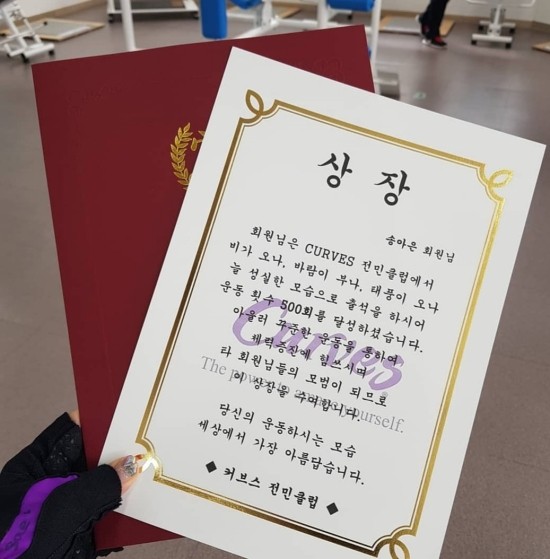 상 장
송아은 회원님
회원님은 CURVES 전민클럽에서
비가 오나, 바람이 부나, 태풍이 오나
늘 성실한 모습으로 출석을 하시어
운동 횟수 500회를 달성하셨습니다.
아울러 꾸준한 운동을 통하여
체력증진에 힘쓰시며
타 회원님들의 모범이 되므로
이 상장을 수여합니다.
Curves
The power to amaze yourself.
당신의 운동하시는 모습
세상에서 가장 아름답습니다.
◆ 커브스 전민클럽 ◆